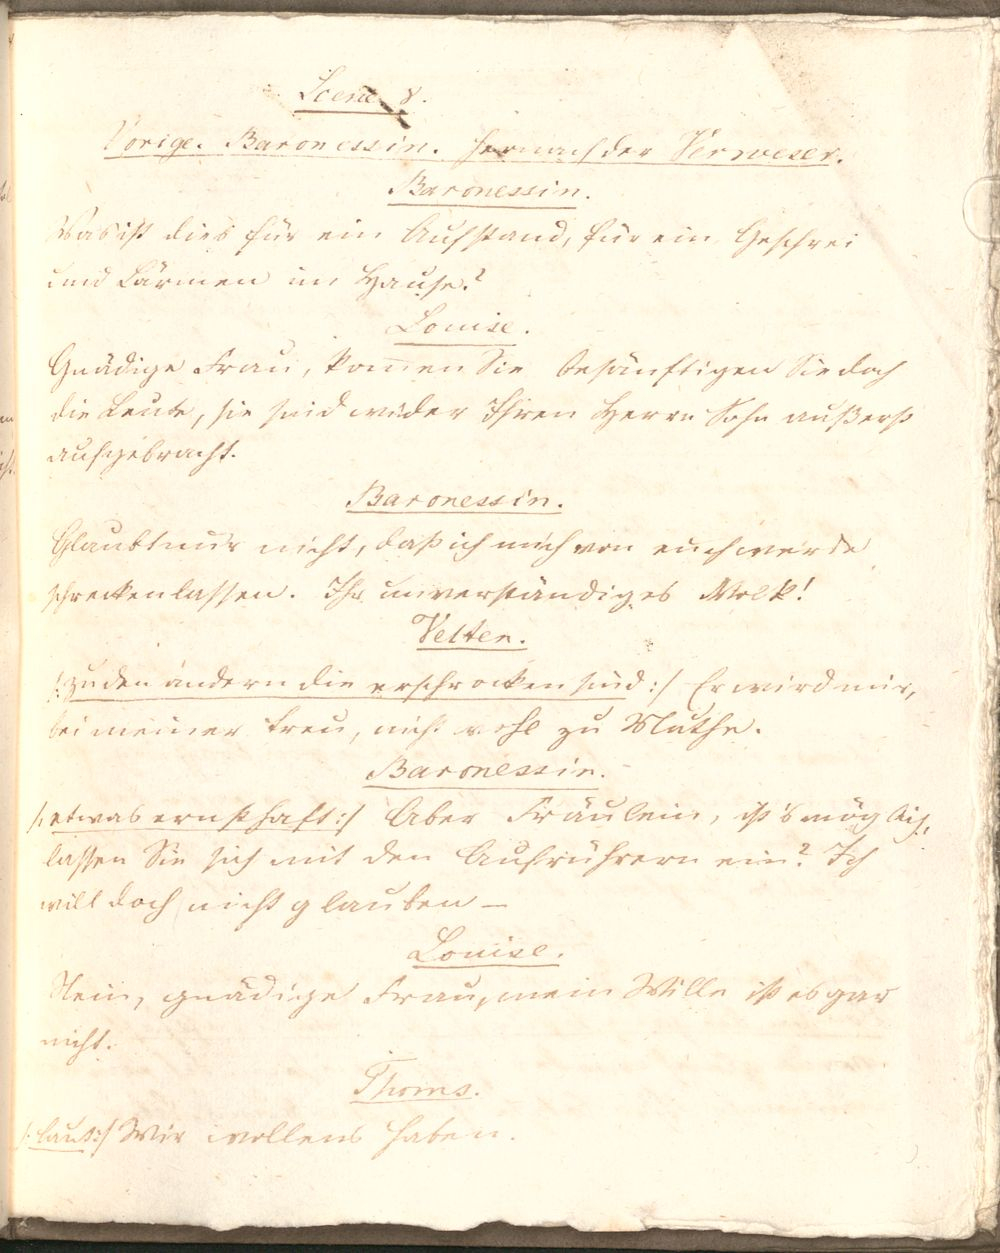 Scene 8.
Vorige. Baronessin. hernach der Verweser.
Baronessin.
Was ist dies für ein Aufstand, für ein Geschrei
und Lärmen im Hause?
Louise.
Gnädige Frau, kom̅en Sie besänftigen Sie doch
die Leute, sie sind wider Ihren Herrn Sohn außerst
aufgebracht.
Baronessin.
Glaubt nur nicht, daß ich mich von euch werde
schrecken lassen. Ihr unverständiges Volk!
Velten.
/: zu den andern die erschrocken sind :/ Er wird mir,
bei meiner Treu, nicht wohl zu Muthe.
Baronessin.
/: etwas ernsthaft :/ Aber Fräulein, ist's möglich,
lassen Sie sich mit den Aufrührern ein? Ich
will doch nicht glauben —
Louise.
Nein, gnädige Frau, mein Wille ist es gar
nicht.
Thoms.
/: laut :/ Wir wollens haben.